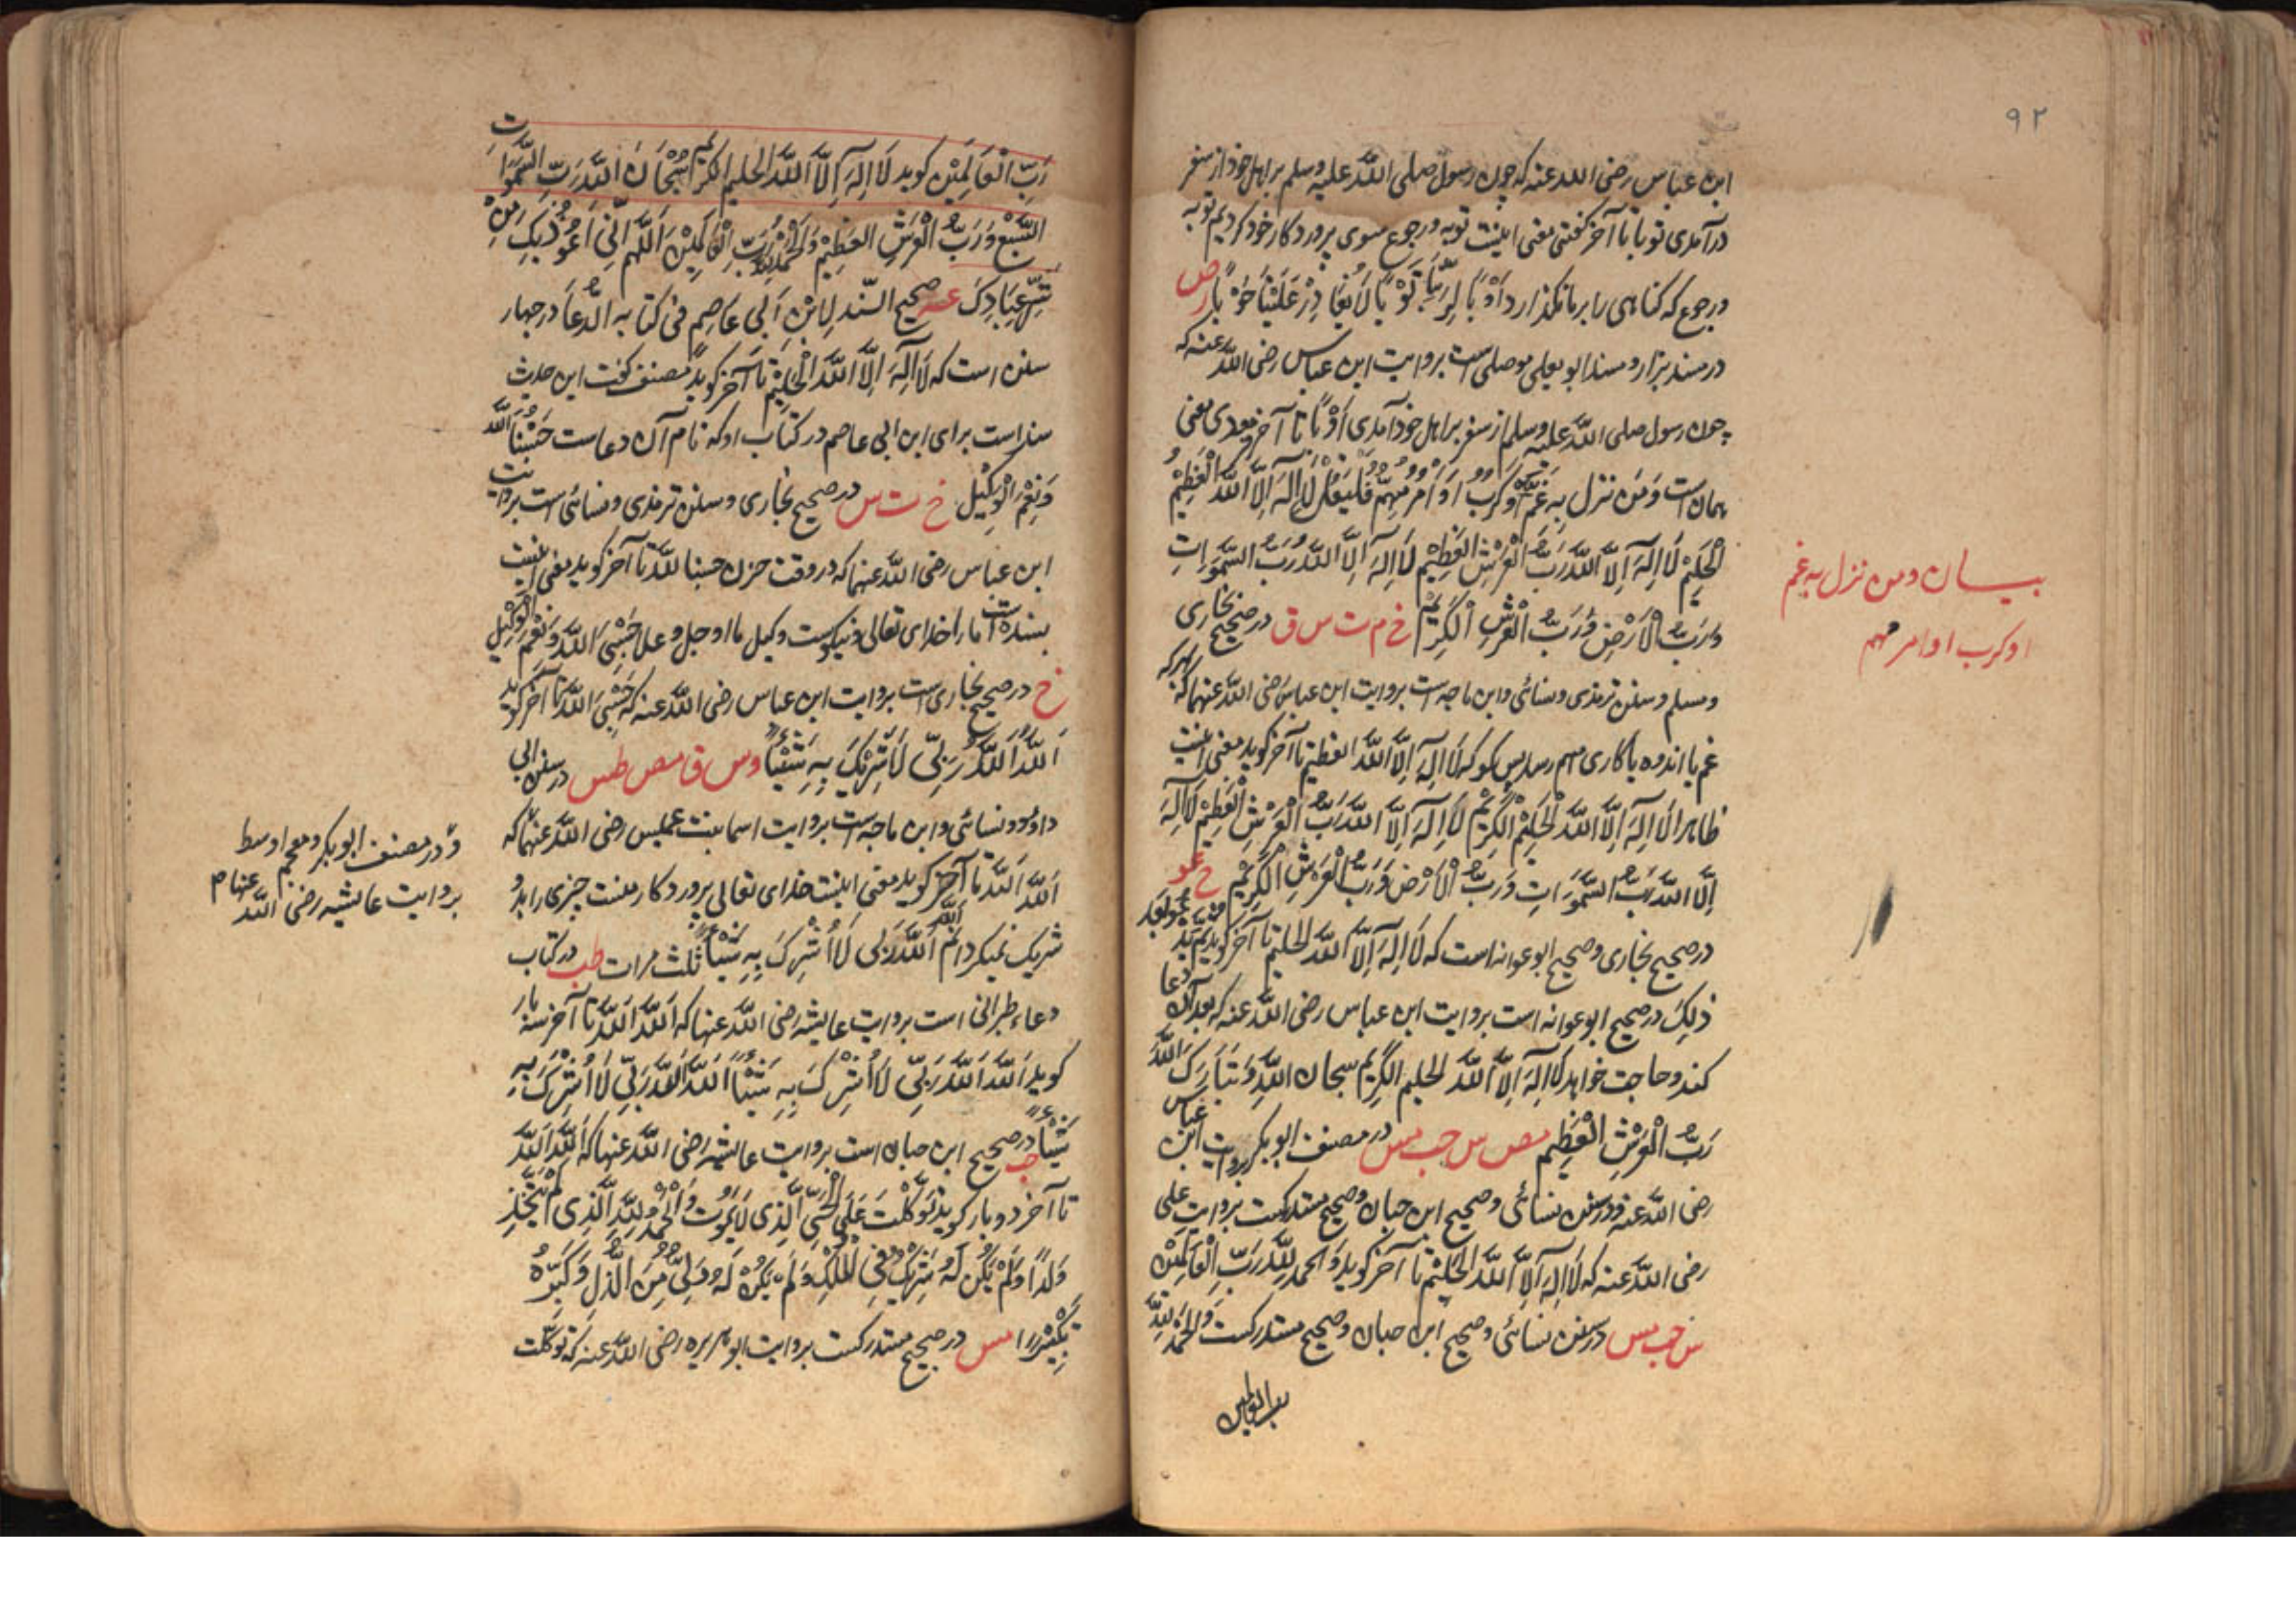 ۹۲
ابن عباس رضی الله عنه که چون رسول صلی الله علیه وسلم بر اهل خود از سفر
درآمدی توبا تا آخر کفتی معنی اینست توبه ورجوع سوی پروردکار خود کردیم توبه
ورجوع که کناهی را بر ما نکذارد أَوْبًا لِرَبِّنَا تَوْبًا لَا یُغَادِرُ عَلَیْنَا حَوْبًا ر ص
در مسند بزار و مسند ابو یعلی موصلی است بروایت ابن عباس رضی الله عنه که
چون رسول صلی الله علیه وسلم از سفر بر اهل خود آمدی أَوْبًا تا آخر فرمودی معنی
همان است وَمَن نزل بِهِ غَمٌّ اَوْ کَرْبٌ اَوْ اَمْرٌ مُهِمٌّ فَلْیَقُلْ لَا اِلٰهَ اِلَّا اللّٰهُ الْعَظِیْمُ
الْحَلِیْمُ لَا اِلٰهَ اِلَّا اللّٰهُ رَبُّ الْعَرْشِ الْعَظِیْمِ لَا اِلٰهَ اِلَّا اللّٰهُ رَبُّ السَّمٰوَاتِ
وَرَبُّ الْاَرْضِ وَرَبُّ الْعَرْشِ الْکَرِیْمِ خ م ت س ق در صحیح بخاری
بیان ومن نزل به غم
او کرب او امر مهم
ومسلم وسنن ترمذی ونسائی وابن ماجه است بروایت ابن عباس رضی الله عنهما که هر که
غم یا اندوه یا کاری مهم رسد پس کو که لَا اِلٰهَ اِلَّا اللّٰهُ العظیم تا آخر کوید معنی اینست
ظاهرا لَا اِلٰهَ اِلَّا اللّٰهُ الْحَلِیْمُ الْکَرِیْمُ لَا اِلٰهَ اِلَّا اللّٰهُ رَبُّ الْعَرْشِ الْعَظِیْمِ لَا اِلٰهَ
اِلَّا اللّٰهُ رَبُّ السَّمٰوَاتِ وَرَبُّ الْاَرْضِ وَرَبُّ الْعَرْشِ الْکَرِیْمِ خ عو
در صحیح بخاری وصحیح ابو عوانه است که لَا اِلٰهَ اِلَّا اللّٰهُ الحلیم تا آخر کوید
ذٰلِکَ در صحیح ابو عوانه است بروایت ابن عباس رضی الله عنه که بعد آن دعا
کند وحاجت خواهد لَا اِلٰهَ اِلَّا اللّٰهُ الحلیم الکریم سبحان اللّٰهِ وَتَبَارَکَ اللّٰهُ
رَبُّ الْعَرْشِ الْعَظِیْمِ مص س حب مس در مصنف ابو بکر بروایت ابن عباس
رضی الله عنه ودر سنن نسائی وصحیح ابن حبان وصحیح مستدرکست بروایت علی
رضی الله عنه که لَا اِلٰهَ اِلَّا اللّٰهُ الْحَلِیْمُ تا آخر کوید وَالحمد لِلّٰهِ رَبِّ الْعَالَمِیْنَ
س حب مس در سنن نسائی وصحیح ابن حبان وصحیح مستدرکست وَالْحَمْدُ لِلّٰهِ
رب العالمین
رَبِّ الْعَالَمِیْنَ کوید لَا اِلٰهَ اِلَّا اللّٰهُ الحلیم الکریم سُبْحَانَ اللّٰهِ رَبِّ السَّمٰوَاتِ
السَّبْعِ وَرَبُّ الْعَرْشِ الْعَظِیْمِ وَالْحَمْدُ لِلّٰهِ رَبِّ الْعَالَمِیْنَ اَللّٰهُمَّ اِنِّی اَعُوْذُ بِکَ مِنْ
شَرِّ عِبَادِکَ صحیح السّند لِابْنِ اَبی عَاصِمٍ فی کتابه الدُّعَا در چهار
سنن است که لَا اِلٰهَ اِلَّا اللّٰهُ الْحَلِیْمُ تا آخر کوید مصنف کفت این حدیث
سند است برای ابن ابی عاصم در کتاب او که نام آن دعاست حَسْبُنَا اللّٰهُ
وَنِعْمَ الْوَکِیْلُ خ ت س در صحیح بخاری وسنن ترمذی ونسائی است بروایت
ابن عباس رضی الله عنهما که در وقت حزن حسبنا الله تا آخر کوید معنی اینست
بسنده است ما را خدای تعالی ونیکوست وکیل ما او جل وعلا حَسْبِیَ اللّٰهُ وَنِعْمَ الْوَکِیْلُ
خ در صحیح بخاری است بروایت ابن عباس رضی الله عنه که حَسْبِیَ اللّٰهُ تا آخر کوید
اَللّٰهُ اَللّٰهُ رَبِّی لَا اُشْرِکُ بِهِ شَیْئًا د س ق مص طس در سنن ابی
داوٗد ونسائی وابن ماجه است بروایت اسما بنت عمیس رضی الله عنها که
اَللّٰهُ اَللّٰهُ تا آخر کوید معنی اینست خدای تعالی پروردکار منست چیزی را بدو
ودر مصنف ابو بکر ومعجم اوسط
بروایت عایشه رضی الله عنها م
شریک نمیکردانم اَللّٰهُ اَللّٰهُ رَبِّی لَا اُشْرِکُ بِهِ شَیْئًا ثلث مرات طب در کتاب
دعاء طبرانی است بروایت عایشه رضی الله عنها که اَللّٰهُ اَللّٰهُ تا آخر سه بار
کوید اَللّٰهُ اَللّٰهُ رَبِّی لَا اُشْرِکُ بِهِ شَیْئًا اَللّٰهُ اَللّٰهُ رَبِّی لَا اُشْرِکُ بِهِ
شَیْئًا حب در صحیح ابن حبان است بروایت عایشه رضی الله عنها که اَللّٰهُ اَللّٰهُ
تا آخر دو بار کوید تَوَکَّلْتُ عَلَی الْحَیِّ الَّذِی لَا یَمُوْتُ وَالْحَمْدُ لِلّٰهِ الَّذِی لَمْ یَتَّخِذْ
وَلَدًا وَلَمْ یَکُنْ لَهُ شَرِیْکٌ فِی الْمُلْکِ وَلَمْ یَکُنْ لَهُ وَلِیٌّ مِنَ الذُّلِّ وَکَبِّرْهُ
تَکْبِیْرًا مس در صحیح مستدرکست بروایت ابو هریره رضی الله عنه که توکلت